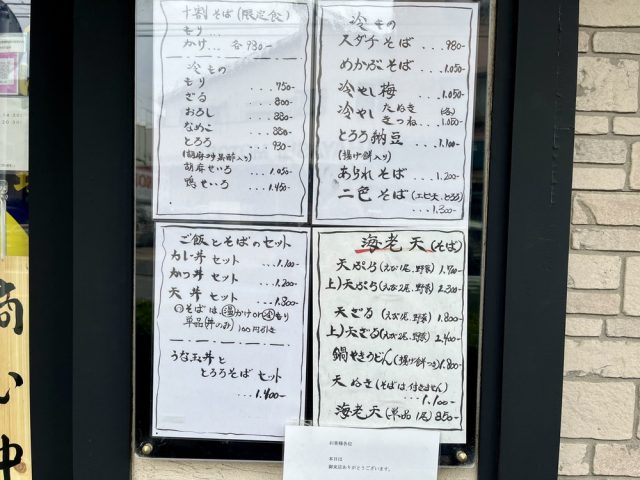 十割そば(限定食)
もり...
かけ... 各930-
冷もの
もり ...750-
ざる ...800-
おろし ...880-
なめこ ...880-
とろろ ...930-
(胡麻or黒酢入り)
胡麻せいろ ...1.050-
鴨せいろ ...1.450-
冷もの
スダチそば ...980-
めかぶそば ...1.050-
冷やし梅 ...1.050-
冷やし たぬき きつね (各) ...1.050-
とろろ納豆 ...1.100-
(揚げ餅入り)
あられそば ...1.200-
二色そば (エビ天、とろろ)
...1.300-
ご飯とそばのセット
カレー丼セット ...1.100-
かつ丼セット ...1.200-
天丼セット ...1.300-
そばは、温かけor冷もり
単品(丼のみ)100円引き
うな玉丼と
とろろそばセット
...1.400-
海老天(そば)
天ぷら(えび1尾、野菜)
上)天ぷら(えび2尾、野菜) 2.300-
天ざる(えび1尾、野菜) 1.800-
上)天ざる(えび2尾、野菜) 2.400-
鍋やきうどん(揚げ餅つき) 1.800-
天ぬき(そばは付きません)
...1.100-
海老天(単品1尾)850-
お客様各位
本日は
御来店ありがとうございます。